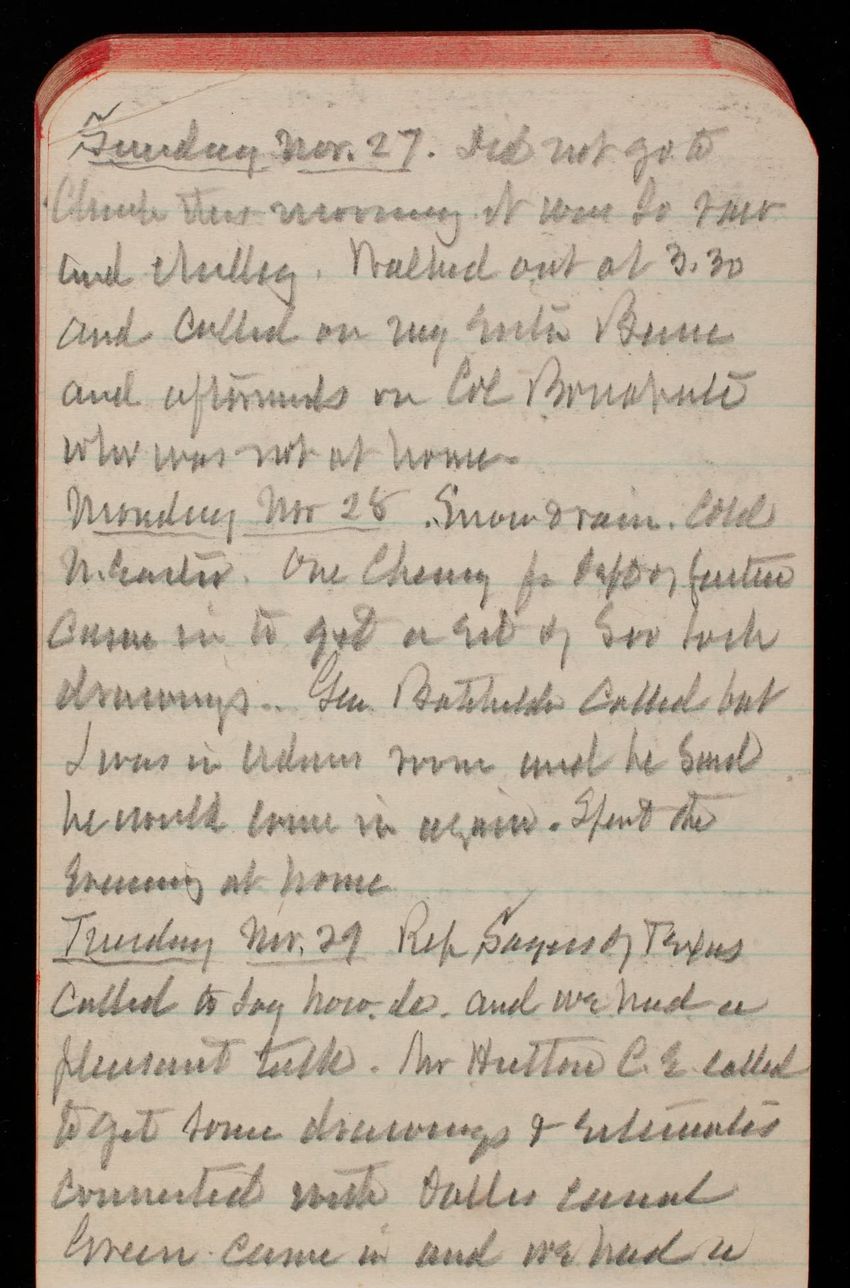 Sunday Nov. 27. Did not go to
Church this morning it was so raw
and chilly. Walked out at 3.30
and called on my sister Bessie
and afterwards on Col Bonaparte
who was not at home.
Monday Nov 28. Snow & rain. Cold
N. Easter. One Cheney fr Dept of
came in to get a set of Soo lock
drawings. Gen Batchelder called but
I was in Adams room and he said
he would come in again. Spent the
Evening at home
Tuesday Nov. 29 Rep Sayers of Texas
called to say how. do. and we had a
pleasant talk. Mr Hutton C. E. called
to get some drawings & estimates
connected with Dalles canal
Green came in and we had a